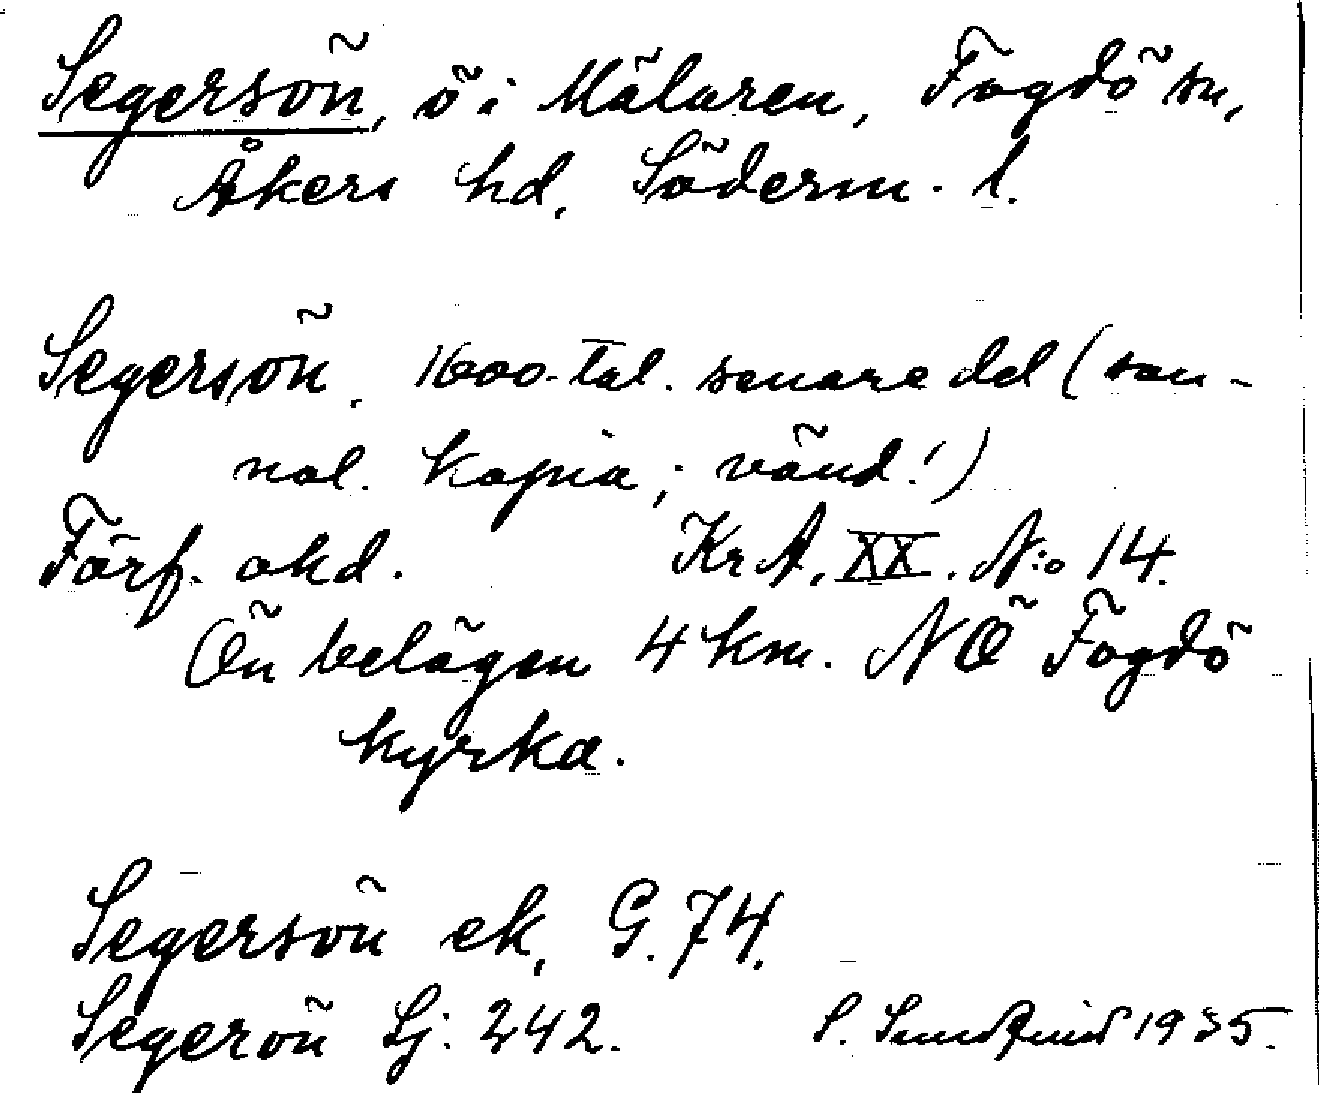 Segersön, ö i Mälaren, Fogdö sn,
Åkers hd, Söderm. l.
Segersön. 1600-tal. senare del (san-
nol. kopia; vänd!)
Förf. okd. Kr A. XX. N:o 14.
Ön belägen 4 km. NÖ Fogdö
kyrka.
Segersön ek, G. 74.
Segerön Lj: 242. S. Sundquist 1935.